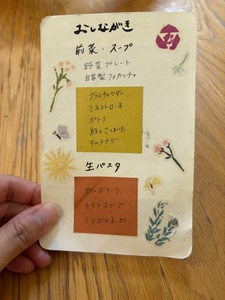 おしながき
前菜・スープ
野菜プレート
自家製フォカッチャ
クラムチャウダー
ミネストローネ
ポトフ
生パスタ
カルボナーラ